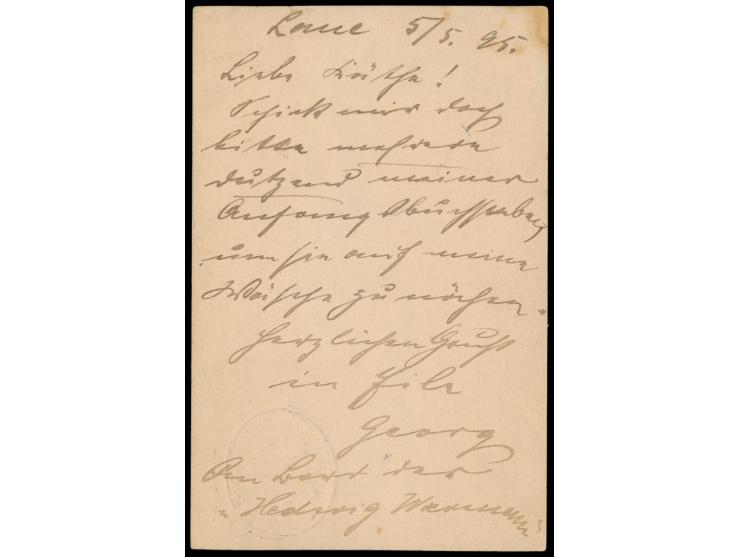 Lome 5/5. 95.
Liebe Käthe!
Schick mir doch
bitte mehrere
dutzend meiner
Anfangsbuchstaben,
um sie auf meine
Wäsche zu nähen.
Herzlichen Gruß
in Eile
Georg
An Bord der
"Hedwig Woermann"